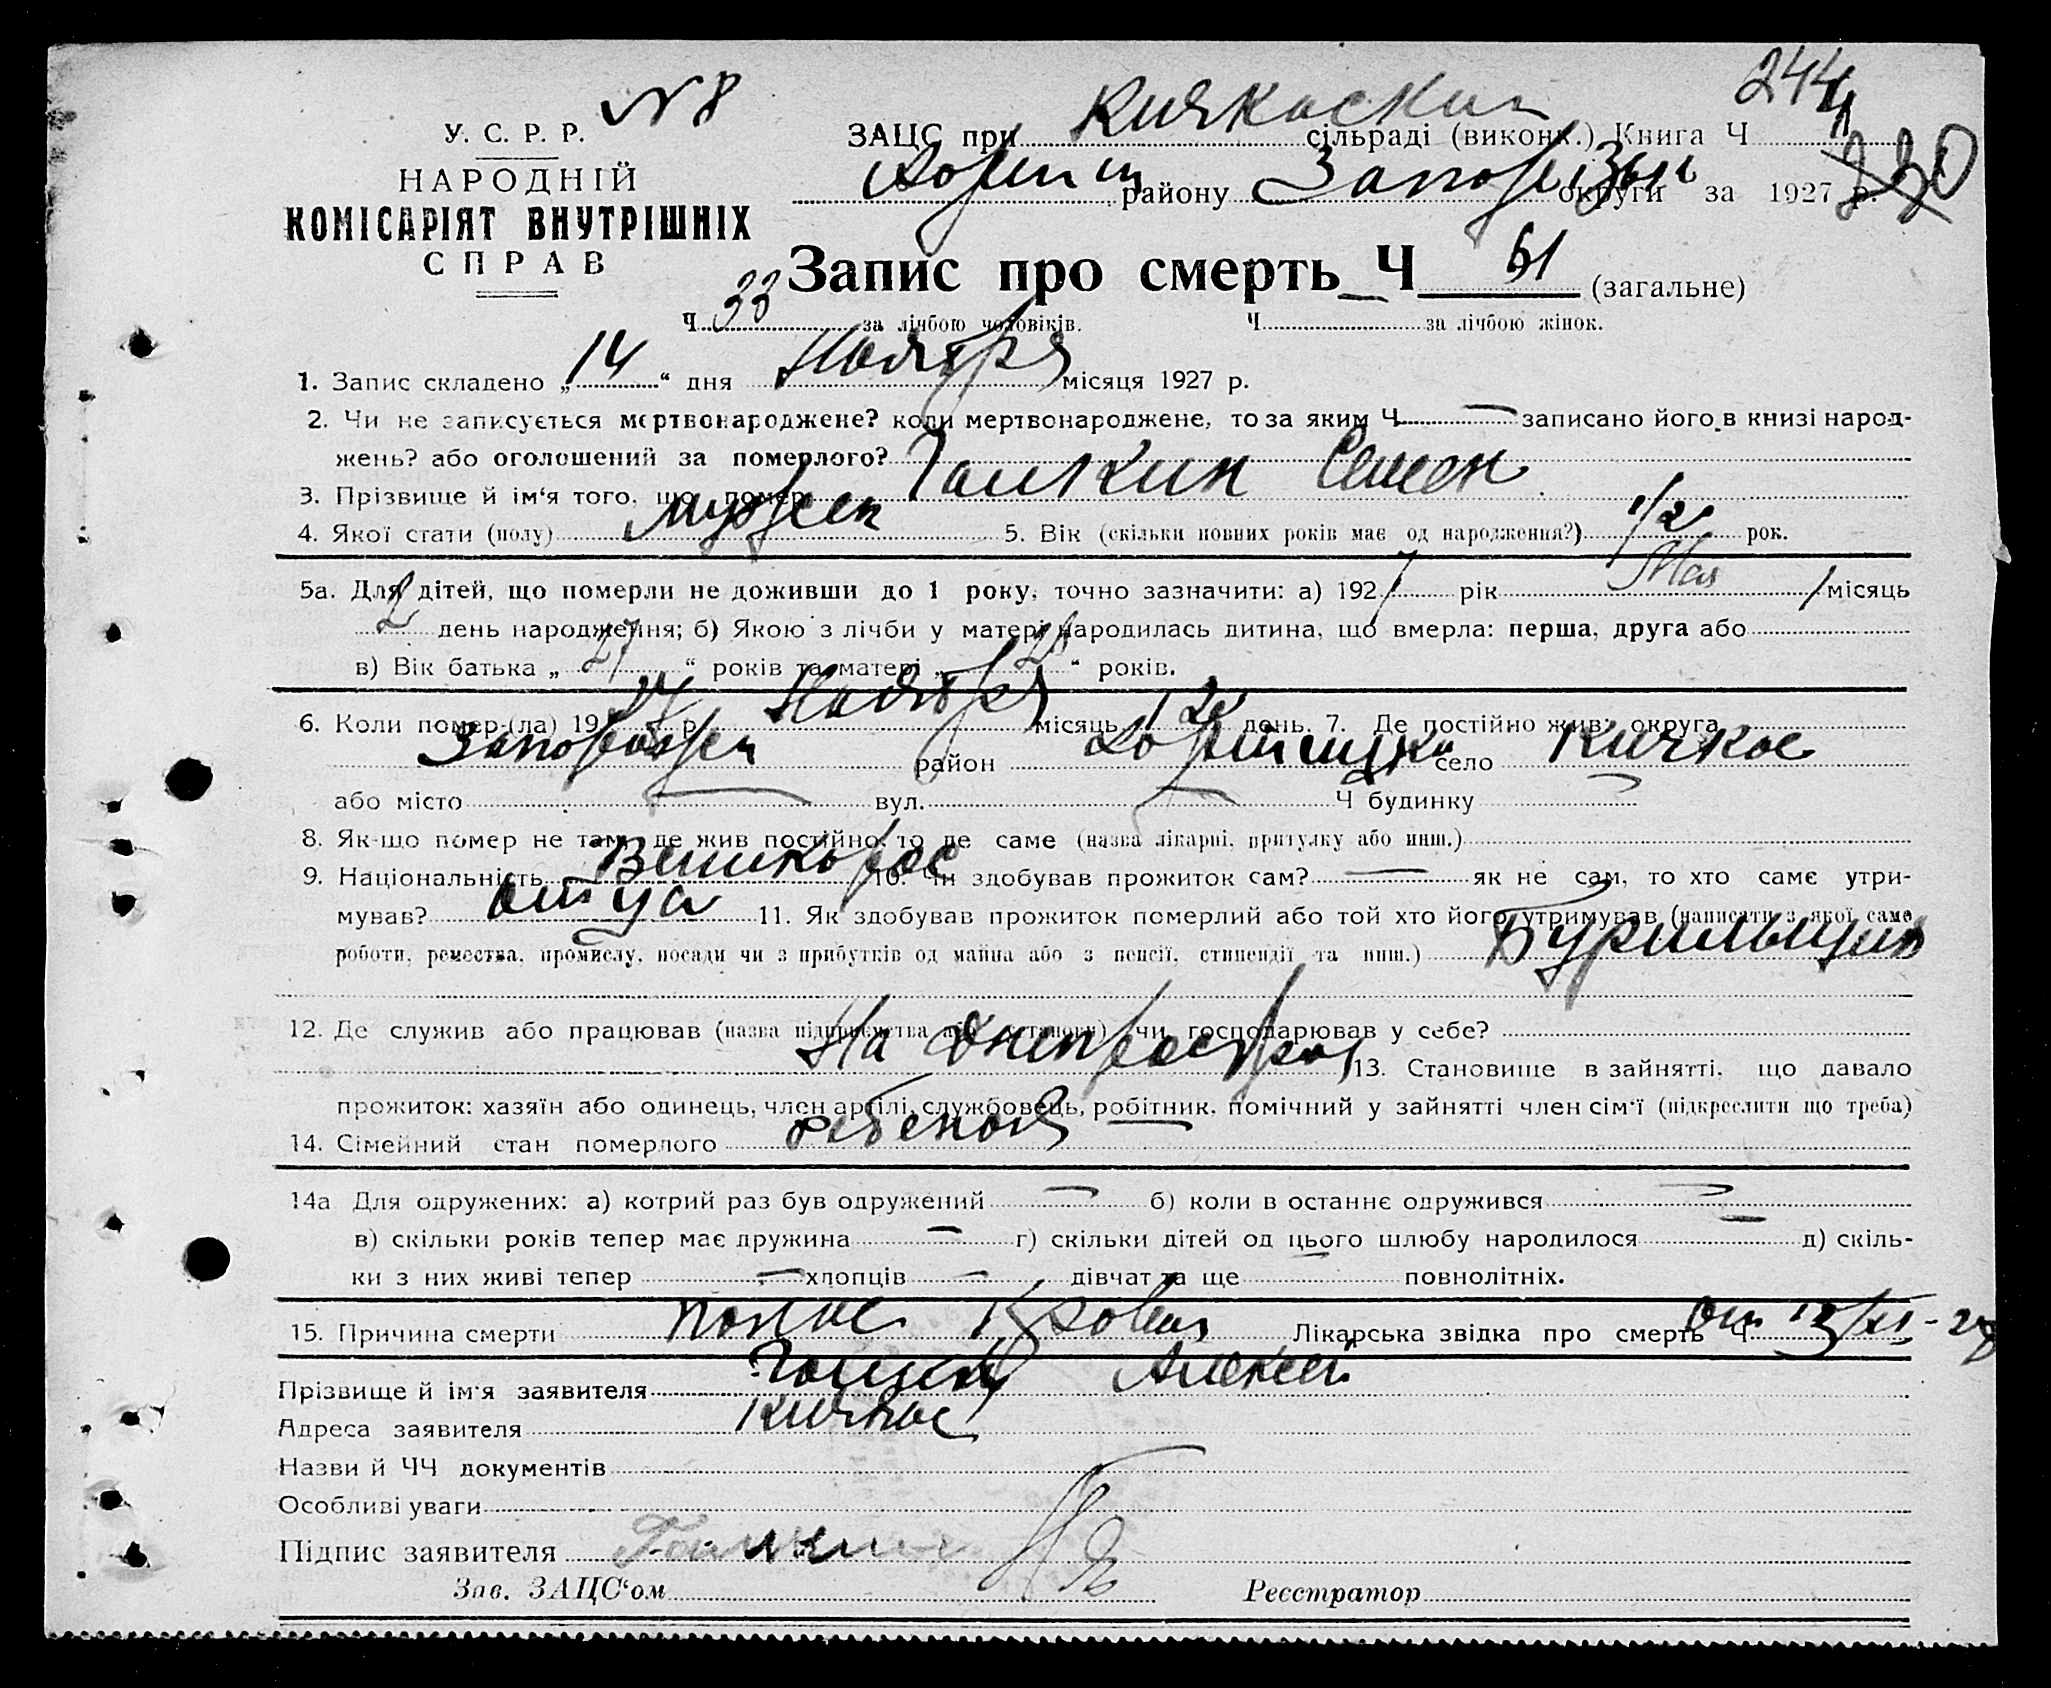 № 8
244
У. С. Р. Р.
ЗАЦС при Кичкаский сільраді (виконк.) Книга Ч
НАРОДНІЙ
району Запоріз округи за 1927 р. 230
КОМІСАРІЯТ ВНУТРІШНІХ
СПРАВ
Запис про смерть Ч 61 (загальне)
Ч 33 за лічбою чоловіків. Ч за лічбою жінок.
1. Запис складено „ 14 “ дня Ноября місяця 1927 р.
2. Чи не записується мертвонароджене? коли мертвонароджене, то за яким Ч — записано його в книзі народ-
жень? або оголошений за померлого?
3. Прізвище й ім‘я того, що помер Галкин Семен
4. Якої стати (полу) мужск 5. Вік (скільки повних років має од народження?) 1/2 рок.
5а. Для дітей, що померли не доживши до 1 року, точно зазначити: а) 1927 рік Мая місяць
2 день народження; б) Якою з лічби у матері народилась дитина, що вмерла: перша, друга або
в) Вік батька „ 27 “ років та матері „ “ років.
6. Коли помер (ла) 1927 р. Ноября місяць 12 день. 7. Де постійно жив: округа
Запорожск район село Кичкас
або місто — вул. — Ч будинку —
8. Як-що помер не там, де жив постійно, то де саме (назва лікарні, притулку або инш.)
9. Національність Великорос 10. Чи здобував прожиток сам? — як не сам, то хто саме утри-
мував? отца 11. Як здобував прожиток померлий або той хто його утримував (написати з якої саме
роботи, ремества, промислу, посади чи з прибутків од майна або з пенсії, стипендії та инш.) Бурильщик
12. Де служив або працював (назва підприємства або установи) чи господарював у себе?
На Днепрострой 13. Становище в зайнятті, що давало
прожиток: хазяїн або одинець, член артілі, службовець, робітник, помічний у зайнятті член сім‘ї (підкреслити що треба)
14. Сімейний стан померлого ребенок
14а Для одружених: а) котрий раз був одружений — б) коли в останнє одружився —
в) скільки років тепер має дружина — г) скільки дітей од цього шлюбу народилося — д) скіль-
ки з них живі тепер — хлопців — дівчат та ще — повнолітніх.
15. Причина смерти понос Кровав Лікарська звідка про смерть Ч от 13/XI-27
Прізвище й ім‘я заявителя Галкин Алексей
Адреса заявителя Кичкас
Назви й ЧЧ документів
Особливі уваги
Підпис заявителя Галкин
Зав. ЗАЦС‘ом Реєстратор